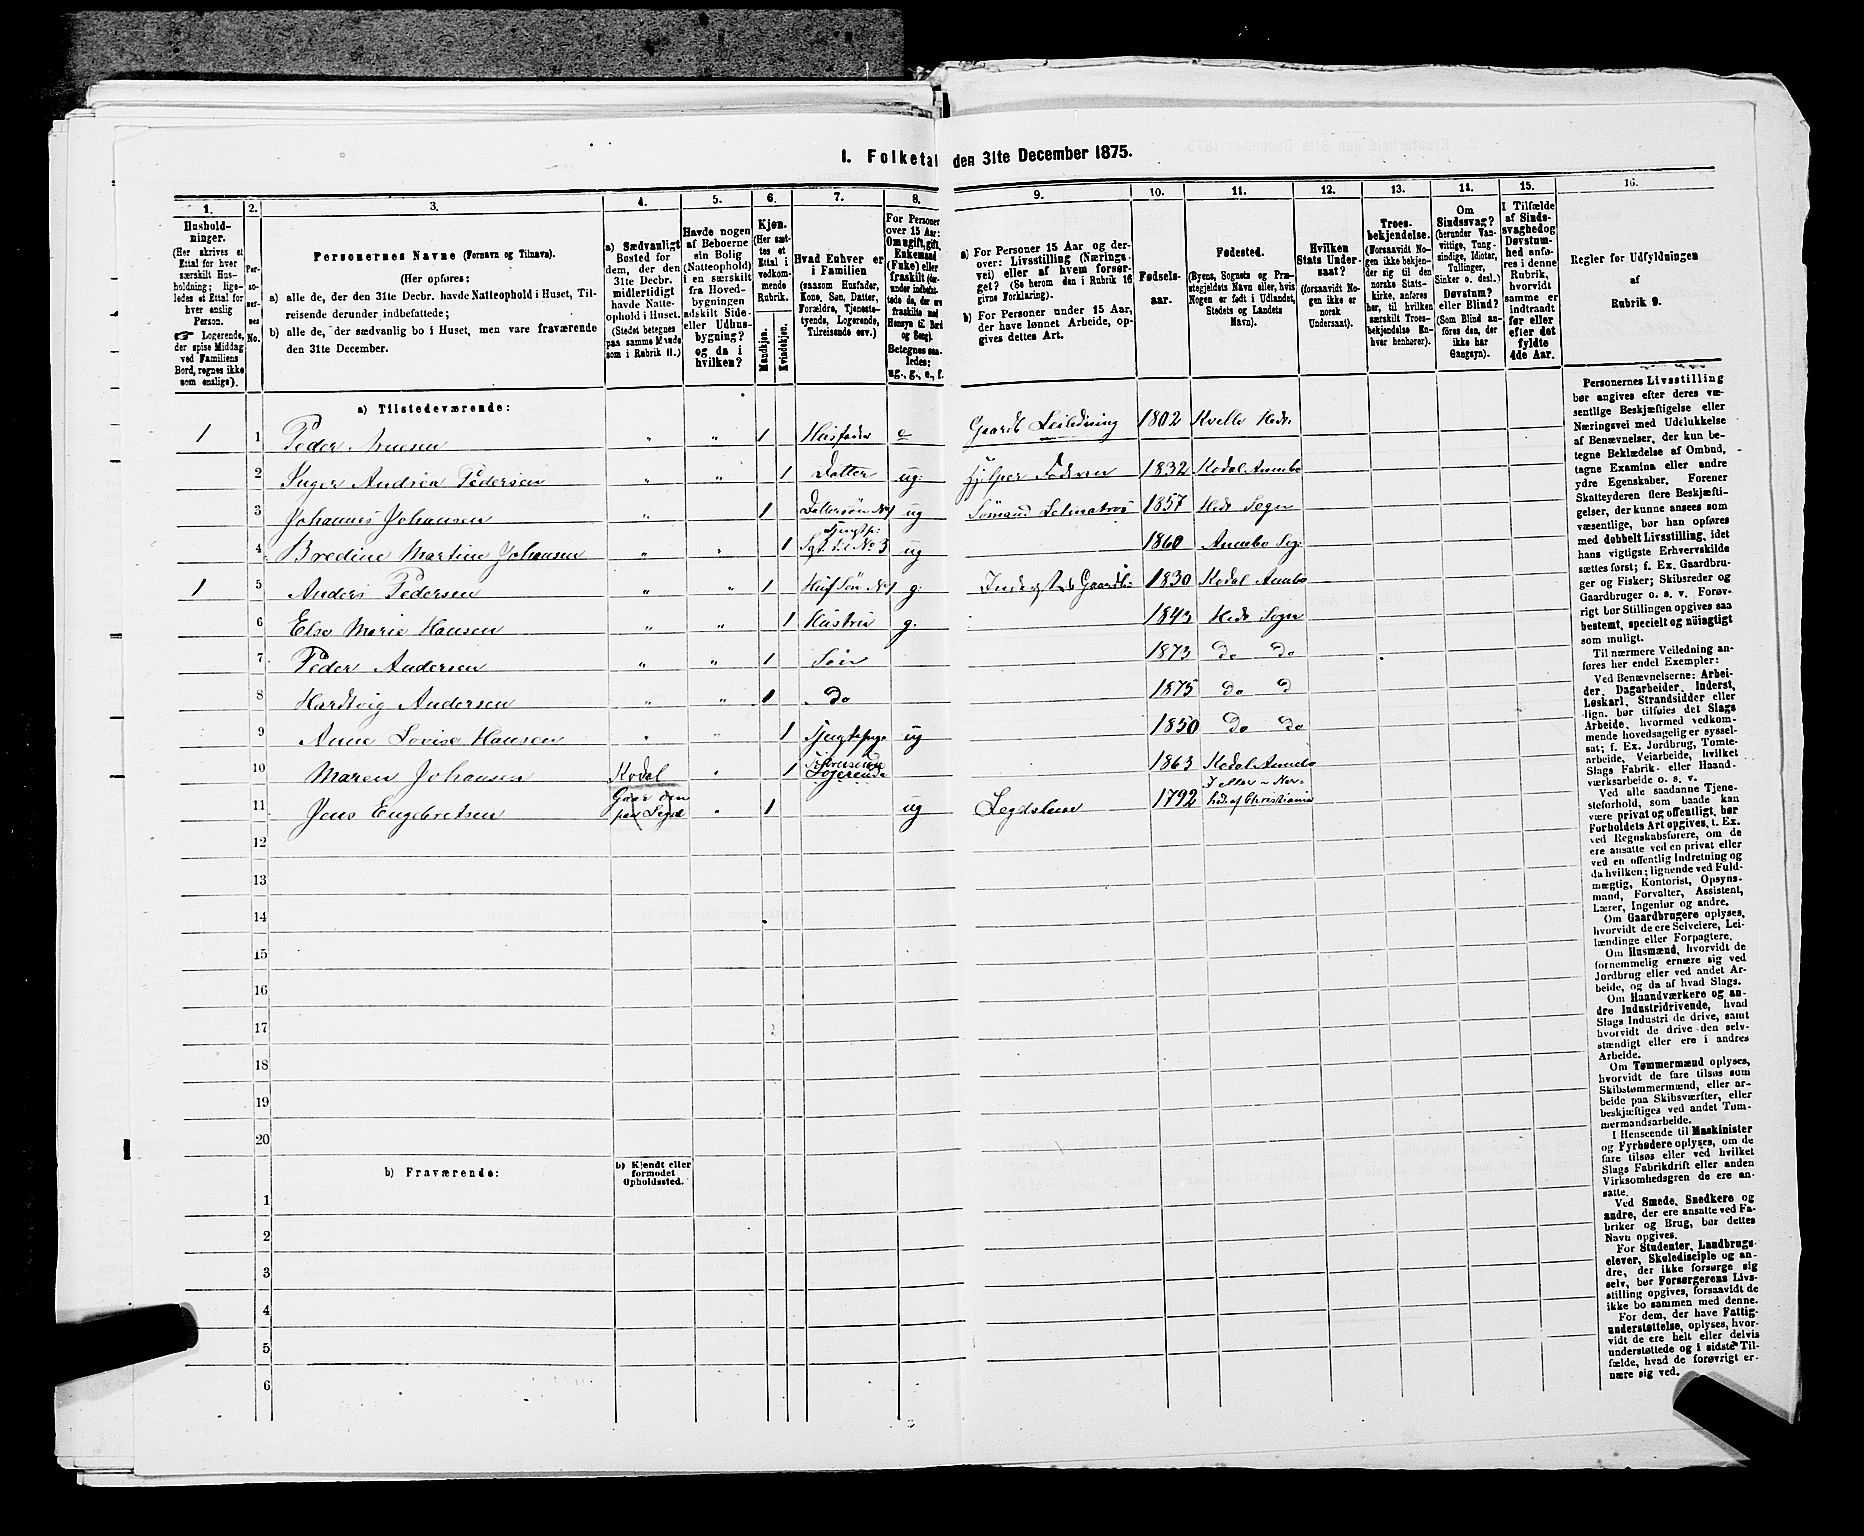 I. Folketal den 31te December 1875.
1. 2. 3. 4. 5. 6. 7. 8. 9. 10. 11. 12. 13. 14. 15. 16.
Hushold-
ninger.
(Her skrives et
Ettal for hver
særskilt Hus-
holdning; lige-
ledes et Ettal for
hver enslig
Person.
☞ Logerende,
der spise Middag
ved Familiens
Bord, regnes ikke
som enslige).
Per-
so-
ner-
nes
No.
Personernes Navne (Fornavn og Tilnavn).
(Her opføres:
a) alle de, der den 31te Decbr. havde Natteophold i Huset, Til-
reisende derunder indbefattede;
b) alle de, der sædvanlig bo i Huset, men vare fraværende
den 31te December.
a) Sædvanligt
Bosted for
dem, der den
31te Decbr.
midlertidigt
havde Natte-
ophold i Huset.
(Stedet betegnes
paa samme Maade
som i Rubrik 11.)
Havde nogen
af Beboerne
sin Bolig
(Natteophold)
i en særskilt
fra Hoved-
bygningen
adskilt Side-
eller Udhus-
bygning?
og da i
hvilken?
Kjøn.
(Her sæt-
tes et
Ettal i
vedkom-
mende
Rubrik.
Mandkjøn.
Kvindekjøn.
Hvad Enhver er
i Familien
(saasom Husfader,
Kone, Søn, Datter,
Forældre, Tjeneste-
tyende, Logerende,
Tilreisende osv.)
For Personer
over 15 Aar:
Om ugift, gift,
Enkemand
(Enke) eller
fraskilt (der-
under indbefat-
tede de, der ere
fraskilte med
Hensyn til Bord
og Seng).
Betegnes saa-
ledes:
ug., g., e., f.
a) For Personer 15 Aar og der-
over: Livsstilling (Nærings-
vei) eller af hvem forsør-
get? (Se herom den i Rubrik 16
givne Forklaring).
b) For Personer under 15 Aar,
der have lønnet Arbeide, op-
gives dettes Art.
Fødsels-
aar.
Fødested.
(Byens, Sognets og Præ-
stegjeldets Navn eller, hvis
Nogen er født i Udlandet,
Stedets og Landets
Navn).
Hvilken
Stats Under-
saat?
(forsaavidt No-
gen ikke er
norsk
Undersaat).
Troes-
bekjendelse.
(Forsaavidt No-
gen ikke bekjen-
der sig til den
norske Stats-
kirke, anføres
her, til hvilken
særskilt Troes-
bekjendelse En-
hver henhører).
Om
Sindssvag?
(herunder Van-
vittige, Tung-
sindige, Idioter,
Tullinger,
Sinker o. desl.)
Døvstum?
eller Blind?
(Som Blind an-
føres den, der
ikke har
Gangsyn).
I Tilfælde
af Sinds-
svaghed og
Døvstum-
hed anfø-
res i denne
Rubrik,
hvorvidt
samme er
indtraadt
før eller
efter det
fyldte
4de Aar.
Regler for Udfyldningen
af
Rubrik 9.
a) Tilstedeværende:
1 1 Peder Anesen " " 1 Husfader e Gaardb Leilending 1802 Kvelle Hedr.
2 Inger Andrea Pedersen " " 1 Datter ug. Hjelper Faderen 1832 Kodal Annebo
3 Johannes Johansen " 1 Dattersøn No 1 ug Sømand 1857 Hedr Sogn
4 Bredine Martine Johansen " " 1 No 3 ug 1860 Annebo Sog.
1 5 Anders Pedersen " " 1 Huf Søn No 1 g. 1830 Kodal Annebo
6 Else Marie Hansen " " 1 Hustru g. 1843 Hedr Sogn
7 Peder Andersen " " 1 Søn 1873 Do Do
8 Hardtvig Andersen " " 1 Do 1875 Do D
9 Anne Lovise Hansen " " 1 ug 1850 Do Do
10 Maren Johansen Kodal " 1 Logerende 1863 Kodal Annebo
11 Jens Engebretsen Gaar den paa Legd " 1 ug Legdslem 1792 hed af Christiania
12
13
14
15
16
17
18
19
20
b) Fraværende:
b) Kjendt eller
formodet
Opholdssted.
1
2
3
4
5
6
Personernes Livsstilling
bør angives efter deres væ-
sentlige Beskjæftigelse eller
Næringsvei med Udelukkelse
af Benævnelser, der kun be-
tegne Beklædelse af Ombud,
tagne Examina eller andre
ydre Egenskaber. Forener
Skatteyderen flere Beskjæfti-
gelser, der kunne ansees som
væsentlige, bør han opføres
med dobbelt Livsstilling, idet
hans vigtigste Erhvervskilde
sættes først; f. Ex. Gaardbru-
ger og Fisker; Skibsreder og
Gaardbruger o. s. v. Forøv-
rigt bør Stillingen opgives saa
bestemt, specielt og nöiagtigt
som muligt.
Til nærmere Veiledning an-
føres her endel Exempler:
Ved Benævnelserne: Arbei-
der, Dagarbeider, Inderst,
Løskarl, Strandsidder eller
lign. bør tilføies det Slags
Arbeide, hvormed vedkom-
mende hovedsagelig er syssel-
sat; f. Ex. Jordbrug, Tomte-
arbeide, Veiarbeide, hvilket
Slags Fabrik- eller Haand-
værksarbeide o. s. v.
Ved alle saadanne Tjene-
steforhold, som baade kan
være privat og offentligt, bør
Forholdets Art opgives, t. Ex.
ved Regnskabsførere, om de
ere ansatte ved en privat eller
ved en offentlig Indretning og
da hvilken; lignende ved Fuld-
mægtig, Kontorist, Opsyns-
mand, Forvalter, Assistent,
Lærer, Ingeniør og andre.
Om Gaardbrugere oplyses,
hvorvidt de ere Selveiere, Lei-
lændinge eller Forpagtere.
Om Husmænd, hvorvidt de
fornemmelig ernære sig ved
Jordbrug eller ved andet Ar-
beide, og da af hvad Slags.
Om Haandværkere og an-
dre Industridrivende, hvad
Slags Industri de drive, samt
hvorvidt de drive den selv-
stændigt eller ere i andres
Arbeide.
Om Tømmermænd oplyses,
hvorvidt de fare tilsøs som
Skibstømmermænd, eller ar-
beide paa Skibsværfter, eller
beskjæftiges ved andet Tøm-
mermandsarbeide.
I Henseende til Maskinister
og Fyrbødere oplyses, om de
fare tilsøs eller ved hvilket
Slags Fabrikdrift eller anden
Virksomhedsgren de ere an-
satte.
Ved Smede, Snedkere og
andre, der ere ansatte ved Fa-
briker og Brug, bør dettes
Navn opgives.
For Studenter, Landbrugs-
elever, Skoledisciple og an-
dre, der ikke forsørge sig
selv, bør Forsørgerens Livs-
stilling opgives, forsaavidt de
ikke bo sammen med denne.
For dem, der have Fattig-
understøttelse, oplyses, hvor-
vidt de ere helt eller delvis
understøttede og i sidste Til-
fælde, hvad de forøvrigt er-
nære sig ved.